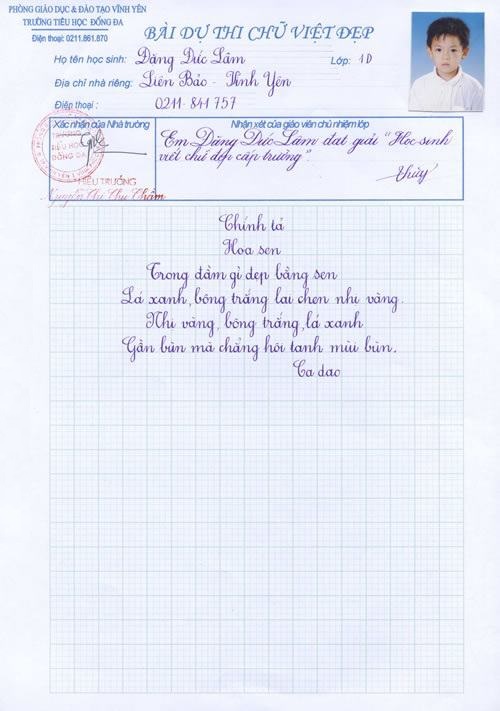 PHÒNG GIÁO DỤC & ĐÀO TẠO VĨNH YÊN
TRƯỜNG TIỂU HỌC ĐỐNG ĐA
Điện thoại: 0211.861.870
BÀI DỰ THI CHỮ VIỆT ĐẸP
Họ tên học sinh: Đặng Đức Lâm Lớp: 1D
Địa chỉ nhà riêng: Liên Bảo - Vĩnh Yên
Điện thoại: 0211- 841 757
Xác nhận của Nhà trường
Nhận xét của giáo viên chủ nhiệm lớp
Em Đặng Đức Lâm đạt giải "Học sinh
viết chữ đẹp cấp trường".
Thúy
TRƯỜNG
TIỂU HỌC
ĐỐNG ĐA
HIỆU TRƯỞNG
Nguyễn Thị Thu Thắm
Chính tả
Hoa sen
Trong đầm gì đẹp bằng sen
Lá xanh, bông trắng lại chen nhị vàng.
Nhị vàng, bông trắng, lá xanh
Gần bùn mà chẳng hôi tanh mùi bùn.
Ca dao